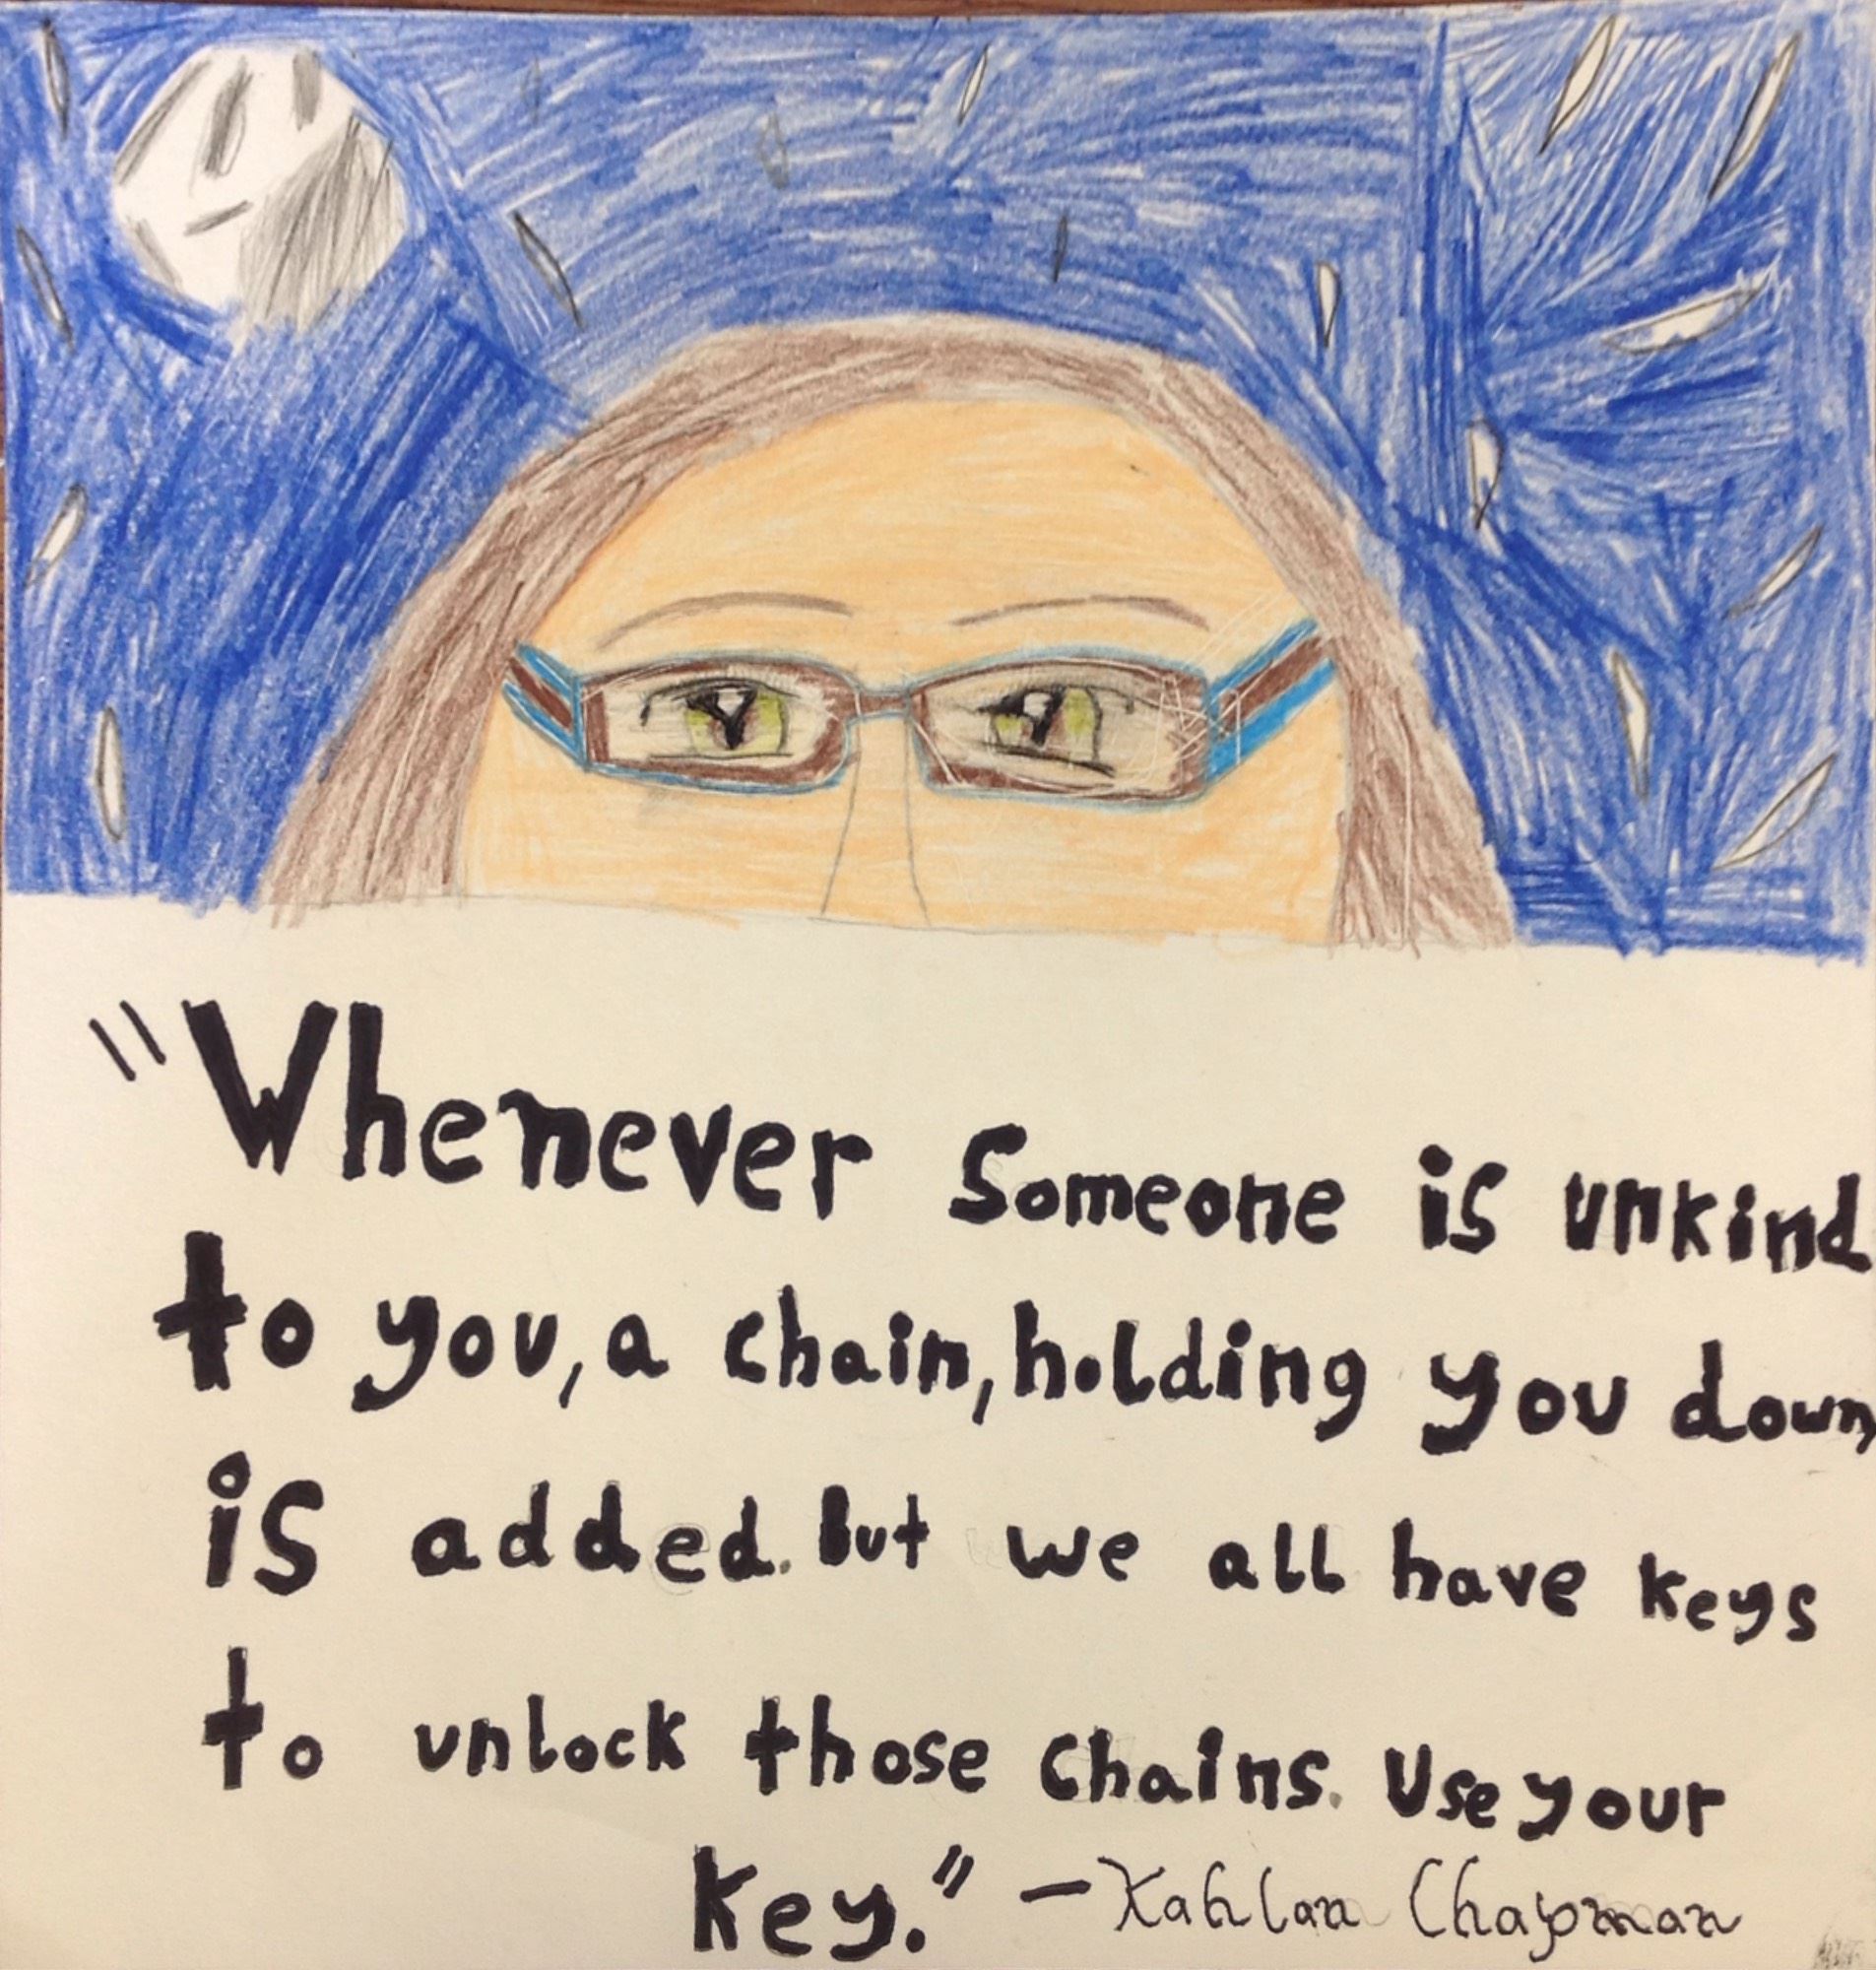 "Whenever someone is unkind
to you, a chain, holding you down,
is added. But we all have keys
to unlock those chains. Use your
key." – Kahlan Chapman